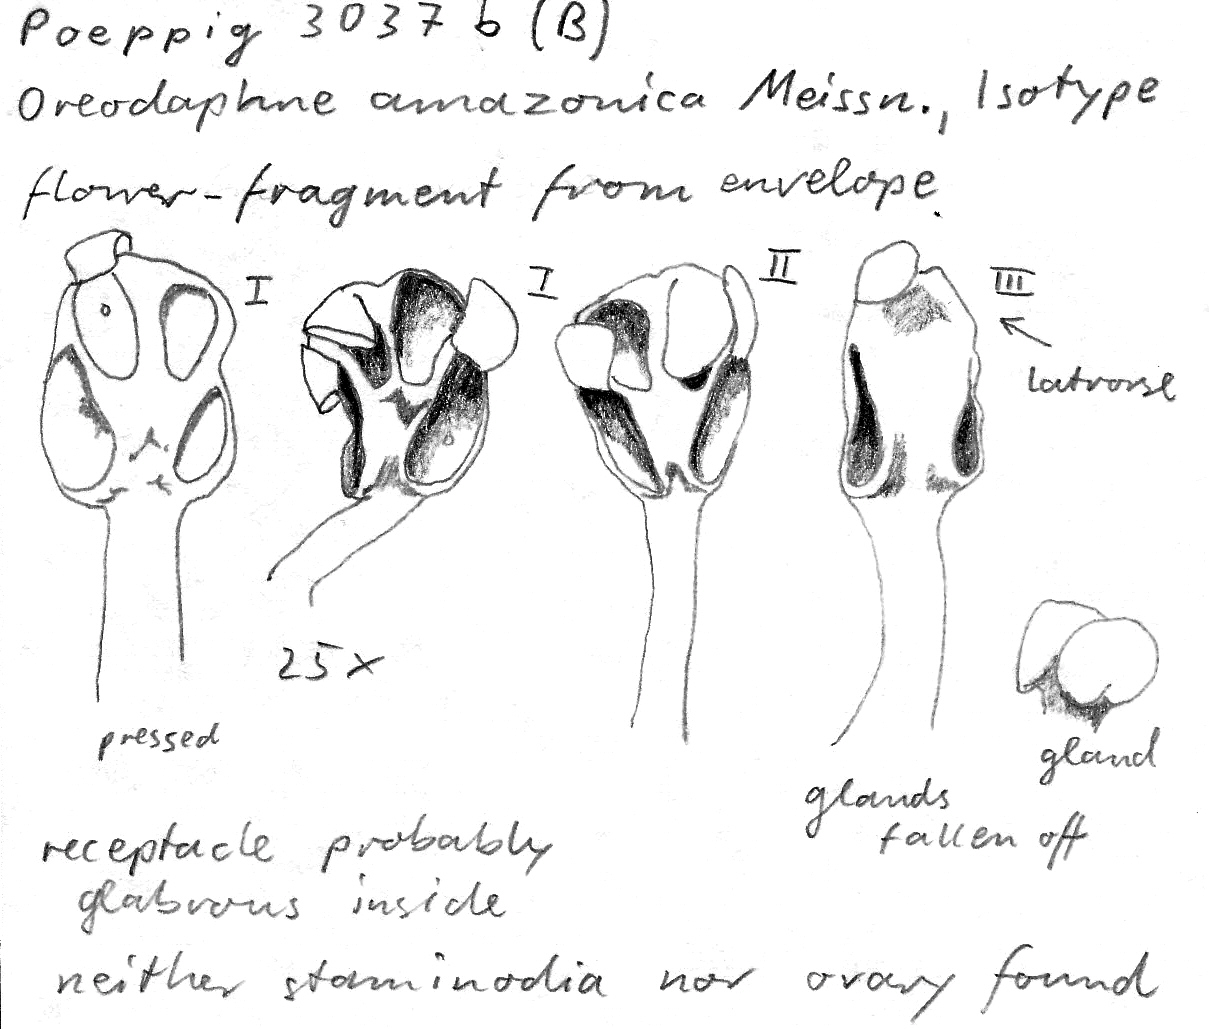 Poeppig 3037 b (B)
Oreodaphne amazonica Meissn., Isotype
flower-fragment from envelope.
I
I
II
III
latrorse
25 x
pressed
gland
glands
fallen off
receptacle probably
glabrous inside
neither staminodia nor ovary found